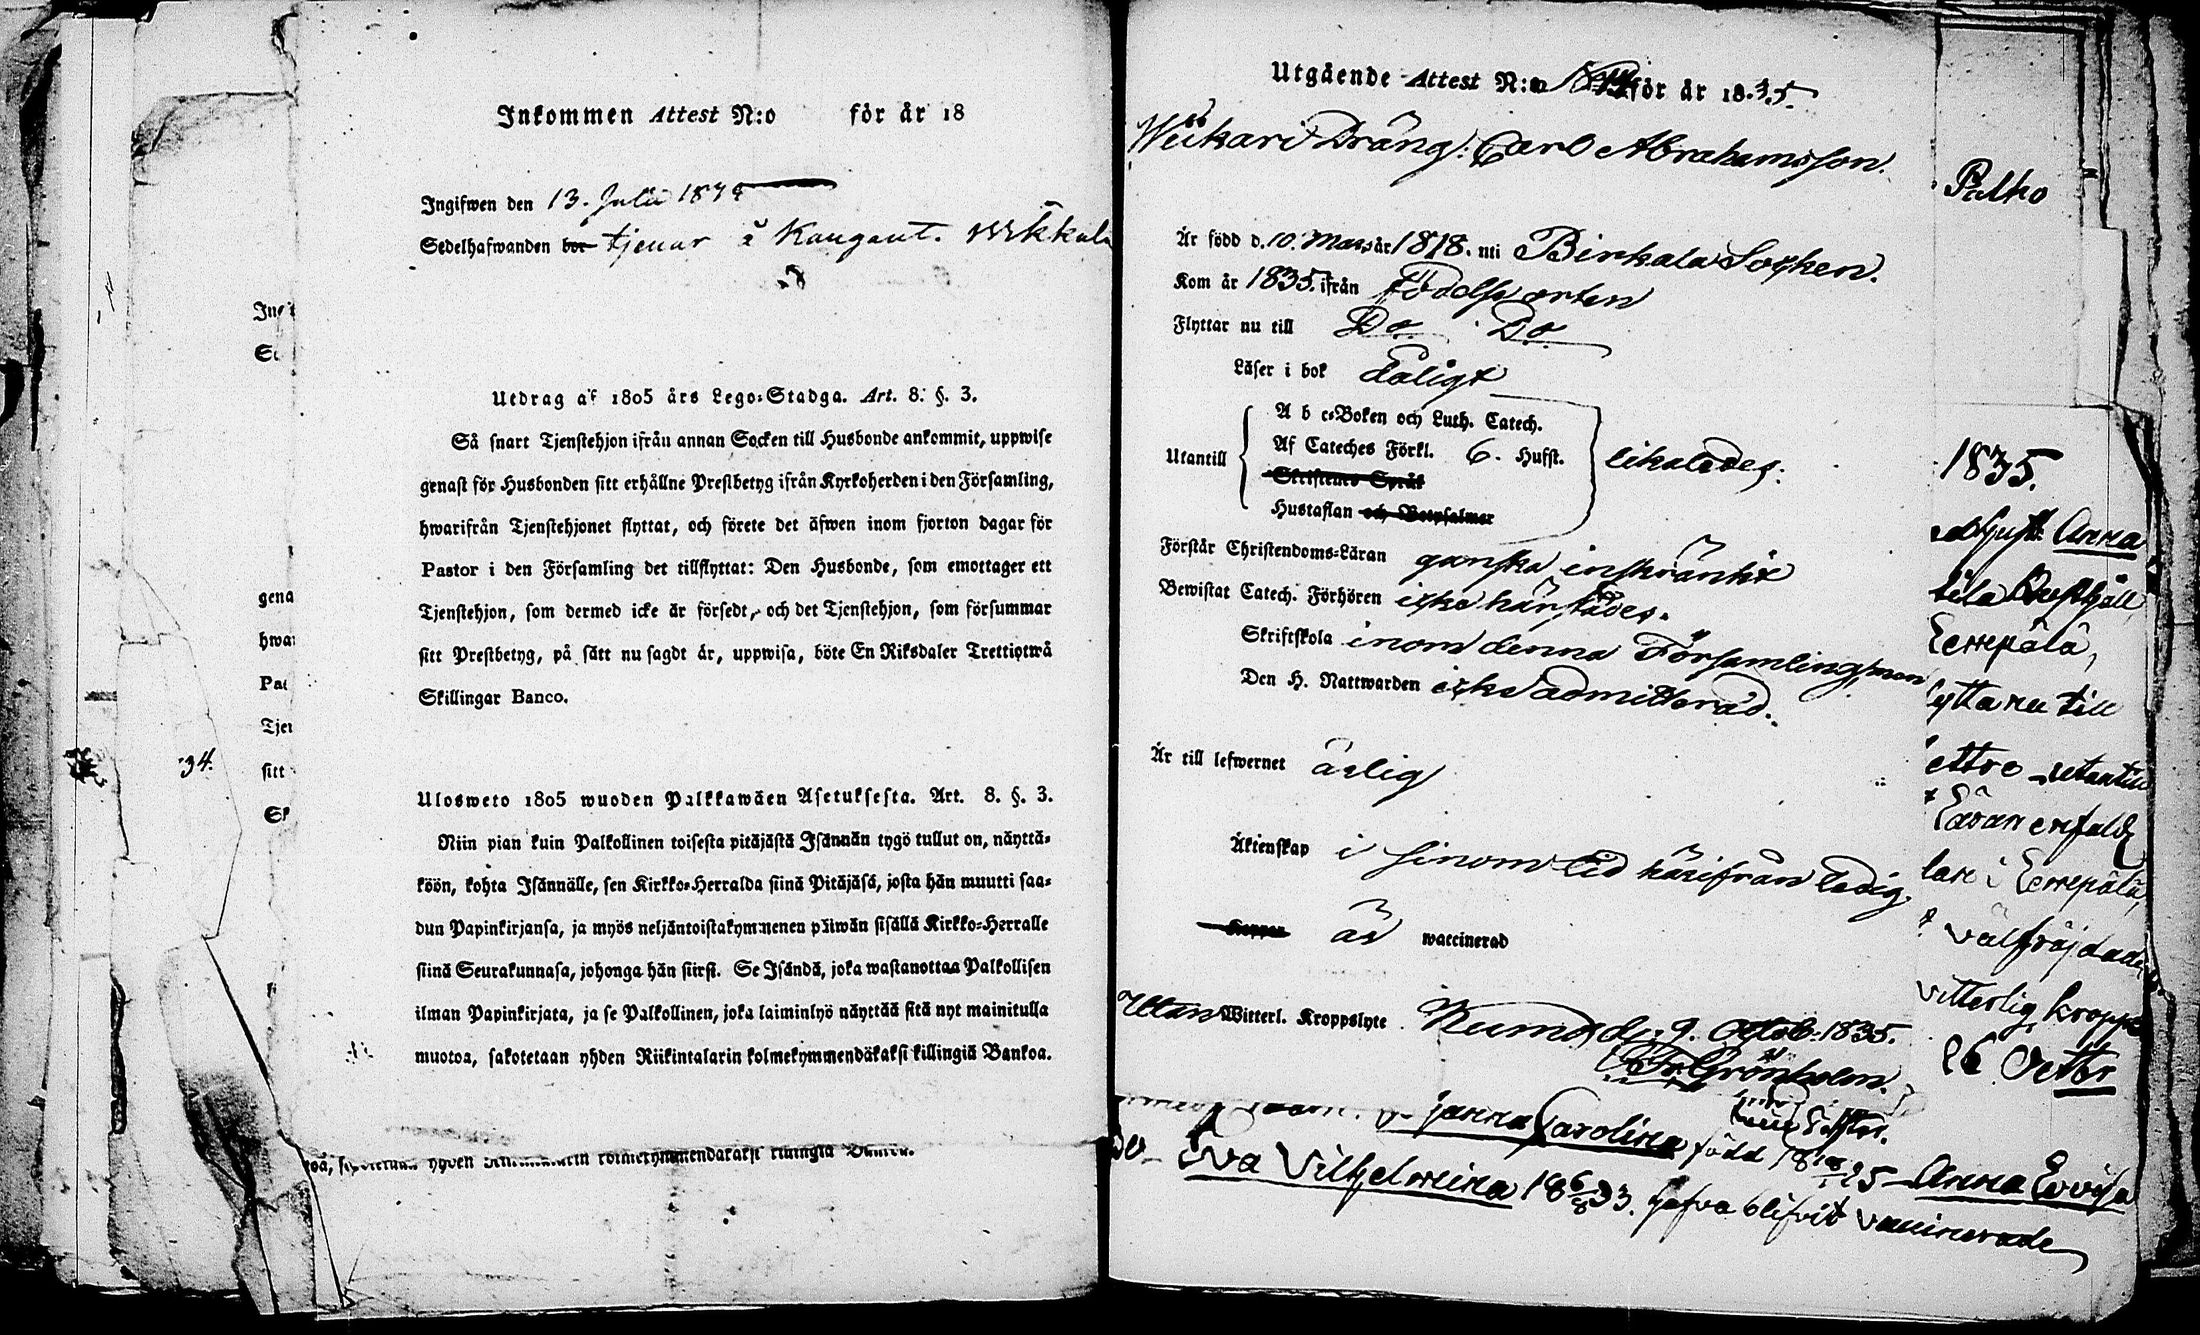 Inkommen Attest N:o för år 18
Ingifwen den 13. Julii 1834
Sedelhafwanden bor tjenar å Kangant.
Utdrag af 1805 års Lego-Stadga. Art. 8. §. 3.
Så snart Tjenstehjon ifrån annan Socken till Husbonde ankommit, uppwise
genast för Husbonden sitt erhållne Prestbetyg ifrån Kyrkoherden i den Församling,
hwarifrån Tjenstehjonet flyttat, och förete det äfwen inom fjorton dagar för
Pastor i den Församling det tillflyttat: Den Husbonde, som emottager ett
Tjenstehjon, som dermed icke är försedt, och det Tjenstehjon, som försummar
sitt Prestbetyg, på sätt nu sagdt är, uppwisa, böte En Riksdaler Trettiotwå
Skillingar Banco.
Ulosweto 1805 wuoden Palkkawäen Asetuksesta. Art. 8. §. 3.
Niin pian kuin Palkollinen toisesta pitäjästä Isännän tygö tullut on, näyttä-
köön, kohta Isännälle, sen Kirkko-Herralda siinä Pitäjäsä, josta hän muutti saa-
dun Papinkirjansa, ja myös neljäntoistakymmenen päiwän sisällä Kirkko-Herralle
siinä Seurakunnasa, johonga hän siirsi. Se Isändä, joka wastanottaa Palkollisen
ilman Papinkirjata, ja se Palkollinen, joka laiminlyö näyttää sitä nyt mainitulla
muotoa, sakotetaan yhden Riikintalarin kolmekymmendäkaksi killingiä Bankoa.
34.
gena
hwar
Tjer
sitt
Utgående Attest N:o för år 1835.
Drängs: Carl Abrahamsson.
Är född d. 10. Mars år 1818. uti Birkala Socken.
Kom år 1835. ifrån Födelseorten
Flyttar nu till Do. Do.
Läser i bok dåligt
Utantill
A b c-Boken och Luth. Catech.
Af Cateches Förkl. 6. Hufst.
Skriftenes Språk
Hustaflan och Botpsalmer
likaledes.
Förstår Christendoms-Läran ganska inskränkt
Bewistat Catech. Förhören icke härstädes.
Skriftskola inom denna Församling, men
Den H. Nattwarden icke admitterad.
Är till lefwernet ärlig
Äktenskap i sinom tid härifrån ledig
Koppor är waccinerad
Utan Witterl. Kroppslyte. Kumo d. 9. Octob. 1835.
Fr. Grönholm.
Carolina född
Eva Vilhelmina 18 6/8 33. hafva blifvit vaccinerade
Anna Lovisa
Palko
1835.
Anna
till
utantill
välfräjdade
vitterlig kropps
26 Octbr